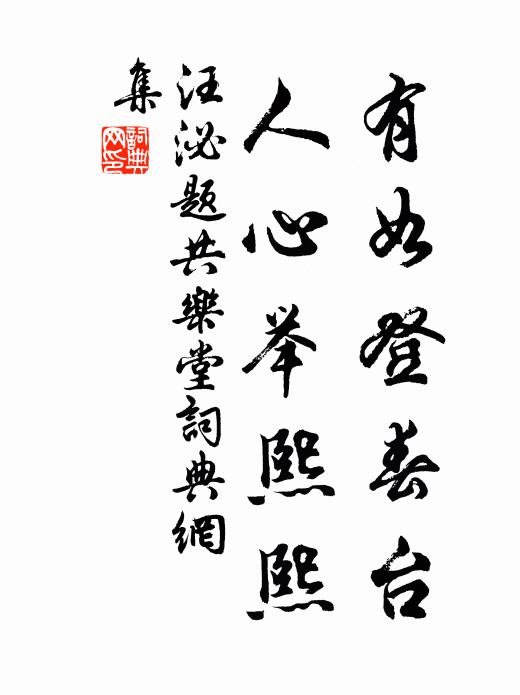 有如登春台
人心举熙熙
汪泌题共樂堂詞典網
集
詞典网印